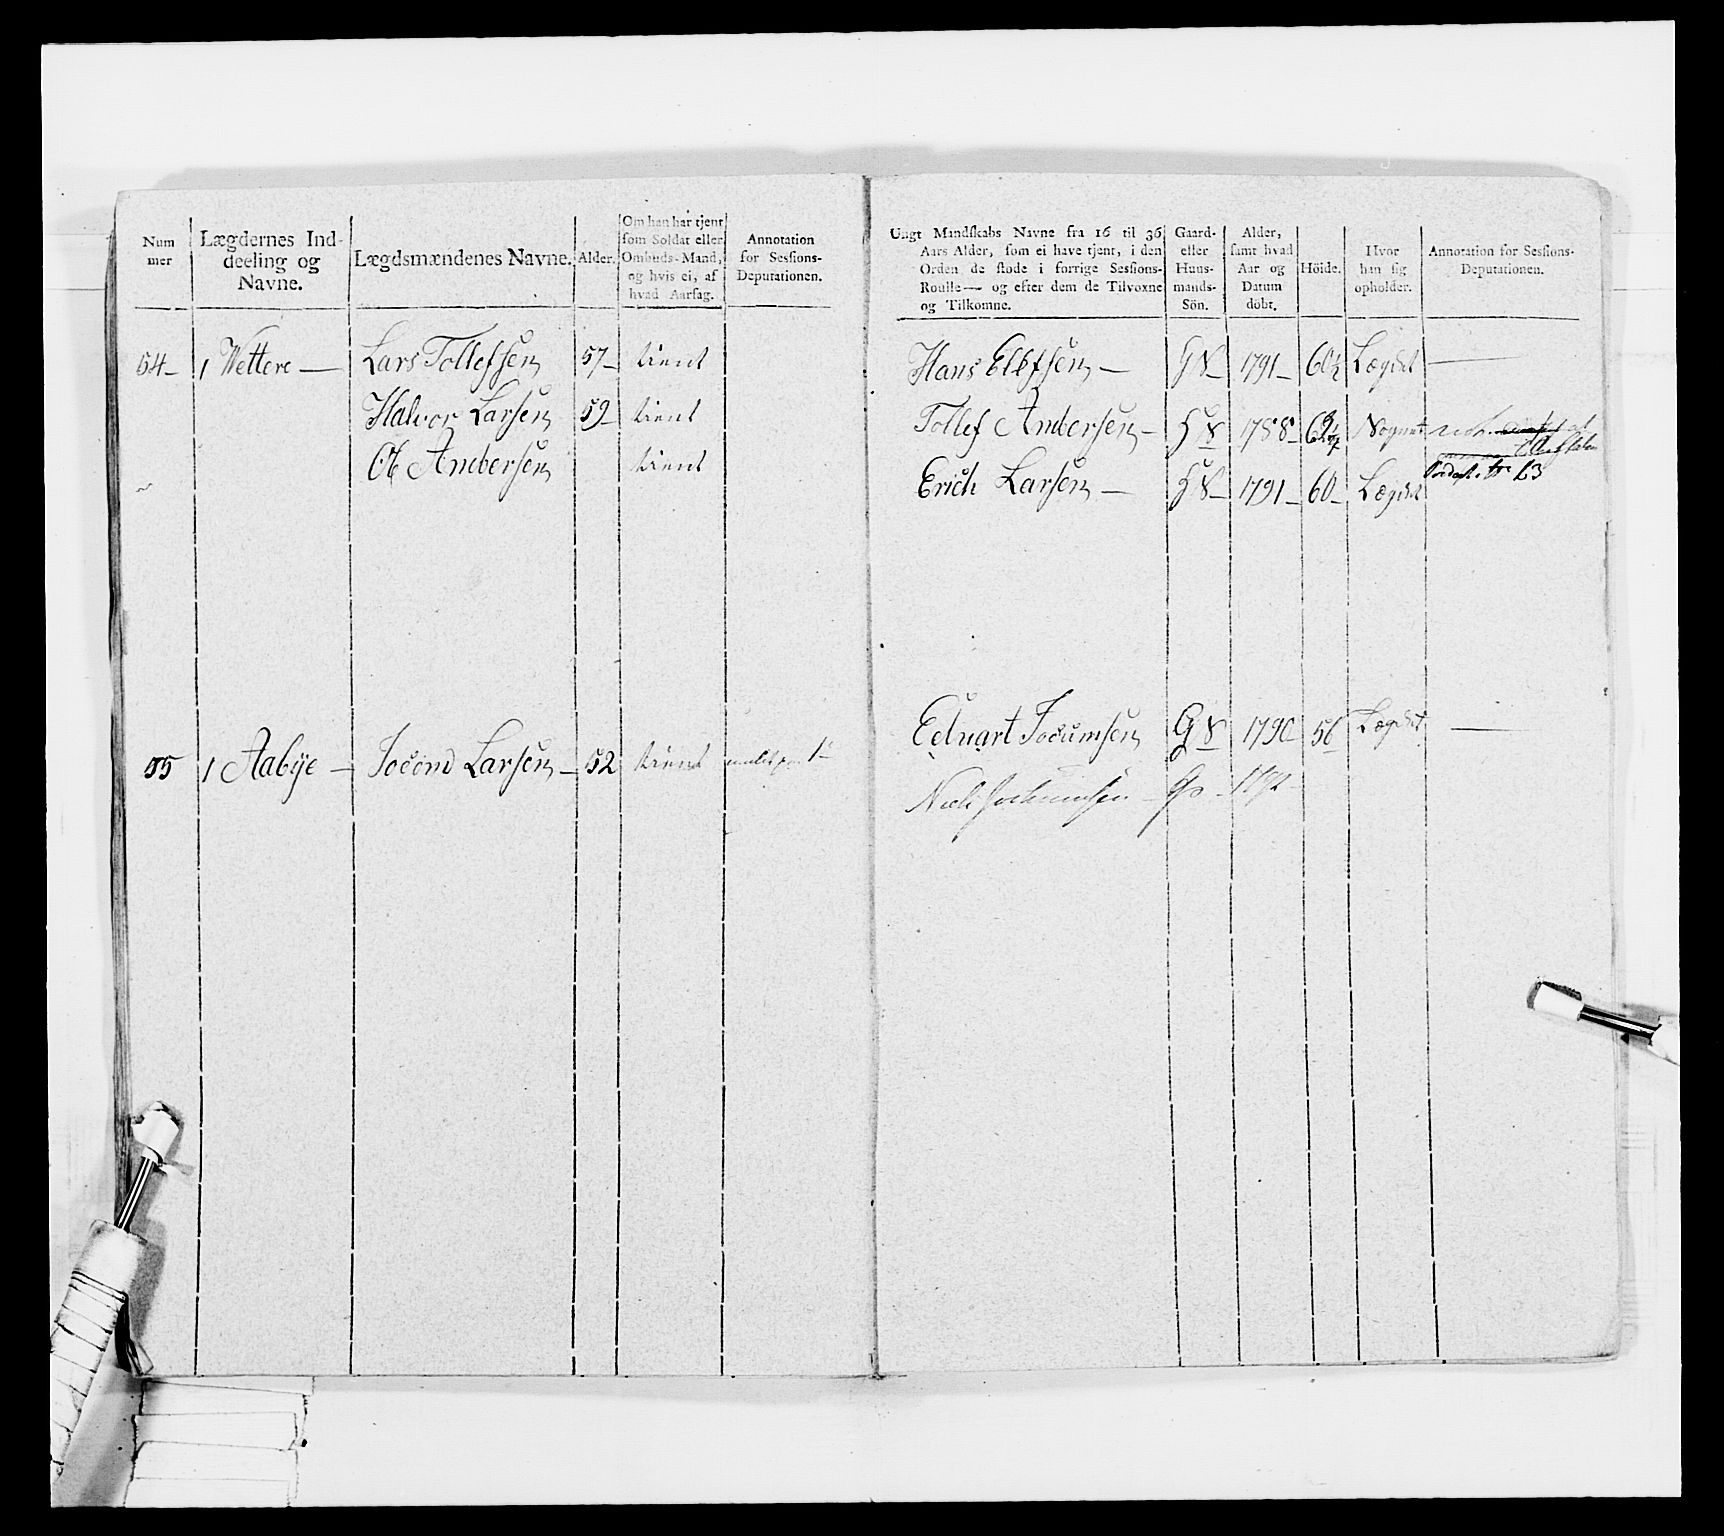 Num
mer
Lægdernes Ind-
deeling og
Navne.
Lægdsmændenes Navne.
Alder.
Om han har tjent
som Soldat eller
Ombuds-Mand,
og hvis ei, af
hvad Aarsag.
Annotation
for Sessions-
Deputationen.
64- 1 Wettere — Lars Tollefsen 57- tient
Halvor Larsen 59- tient
Ole Andersen tient
55 1 Aabÿe — Jocom Larsen - 52 tient
Ungt Mandskabs Navne fra 16 til 36
Aars Alder, som ei have tjent, i den
Orden de stode i forrige Sessions-
Roulle— og efter dem de Tilvoxne
og Tilkomne.
Gaard-
eller
Huus-
mands-
Sön.
Alder,
samt hvad
Aar og
Datum
döbt.
Höide.
Hvor
han sig
opholder.
Annotation for Sessions-
Deputationen.
Hans Ellefsen — GS- 1791- 60½ Lægdet —
Tollef Andersen- HS 1788- Sognet
Erich Larsen — HS- 1791- 60- Lægdet
Eduart Jocumsen GS 1790 56 Lægdet —
Niels Jochumsen - Gs - 1792 -